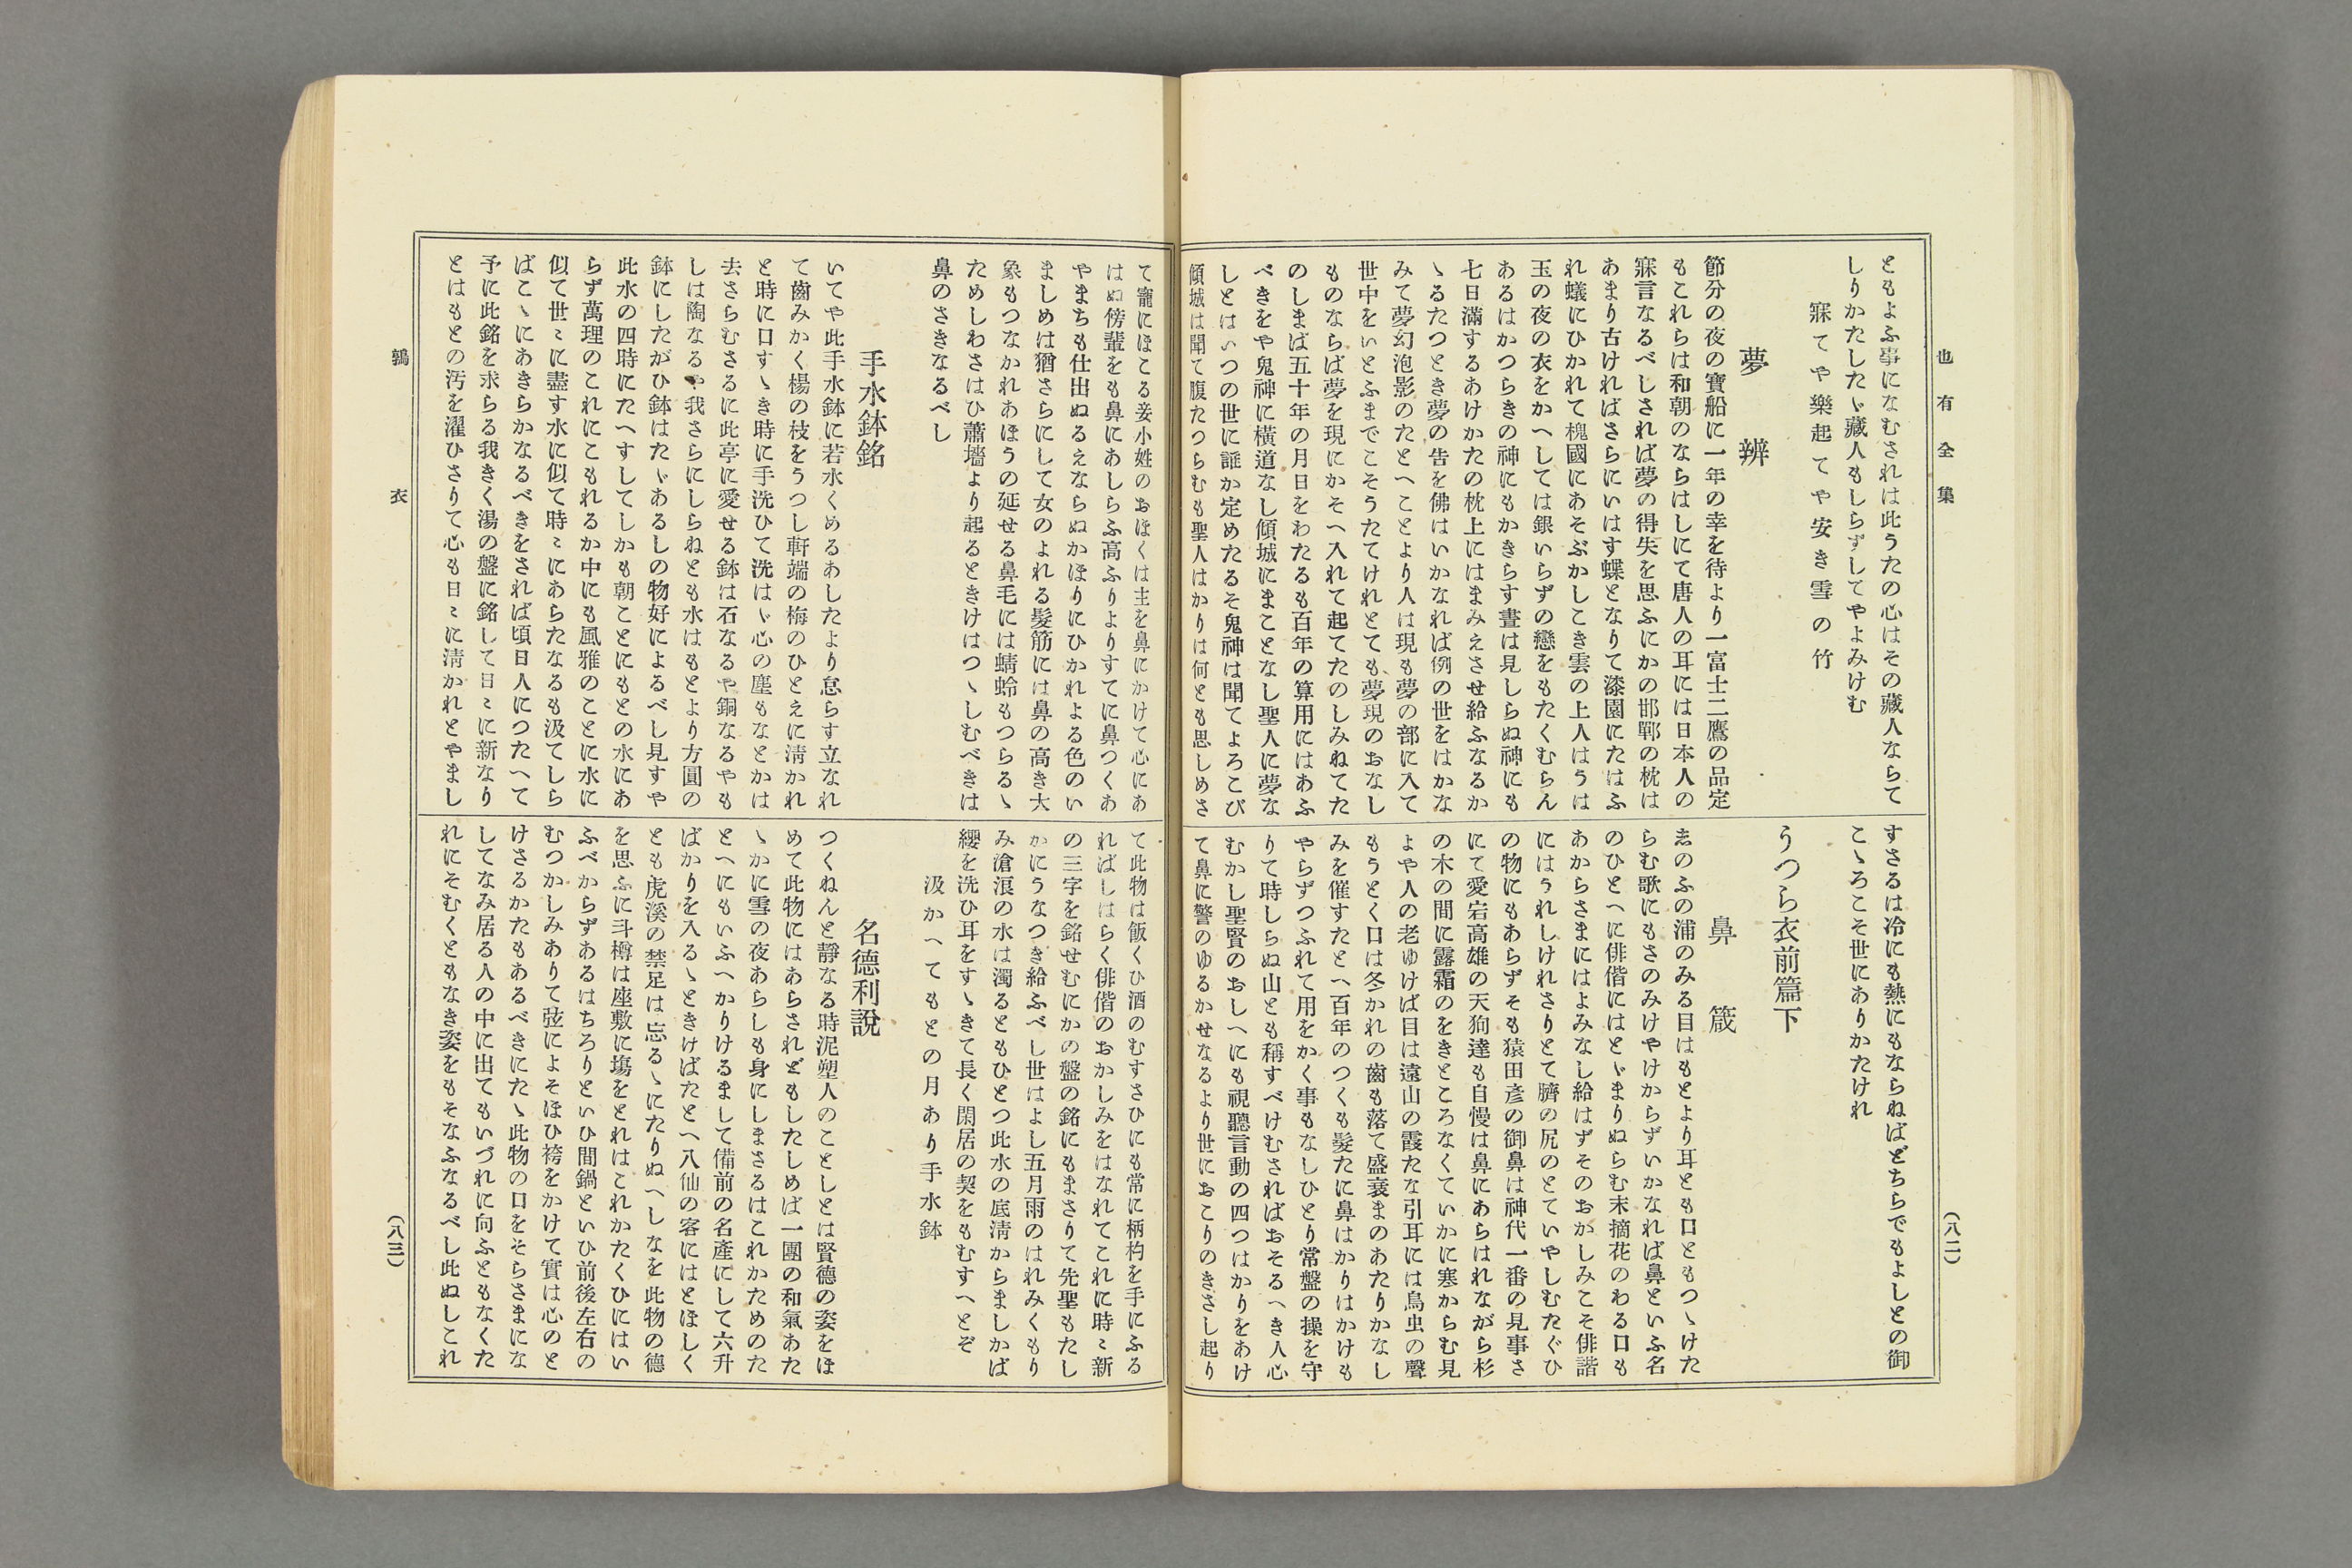 也有全集
ともよふ事になむされは此うたの心はその藏人ならて
しりかたしたゝ藏人もしらずしてやよみけむ
寐てや樂起てや安き雪の竹
夢辨
節分の夜の寶船に一年の幸を待より一富士二鷹の品定
もこれらは和朝のならはしにて唐人の耳には日本人の
寐言なるべしされば夢の得失を思ふにかの邯鄲の枕は
あまり古ければさらにいはす蝶となりて漆園にたはふ
れ蟻にひかれて槐國にあそぶかしこき雲の上人はうは
玉の夜の衣をかへしては銀いらずの戀をもたくむらん
あるはかつらきの神にもかきらす晝は見しらぬ神にも
七日滿するあけかたの枕上にはまみえさせ給ふなるか
ゝるたつとき夢の告を佛はいかなれば例の世をはかな
みて夢幻泡影のたとへことより人は現も夢の部に入て
世中をいとふまでこそうたてけれとても夢現のおなし
ものならば夢を現にかそへ入れて起てたのしみねてた
のしまば五十年の月日をわたるも百年の算用にはあふ
べきをや鬼神に横道なし傾城にまことなし聖人に夢な
しとはいつの世に誰か定めたるそ鬼神は聞てよろこび
傾城は聞て腹たつらむも聖人はかりは何とも思しめさ
すさるは冷にも熱にもならねばどちらでもよしとの御
こゝろこそ世にありかたけれ
うつら衣前篇下
鼻箴
ゑのふの浦のみる目はもとより耳とも口ともつゝけた
らむ歌にもさのみけやけからずいかなれば鼻といふ名
のひとへに俳偕にはとゞまりぬらむ末摘花のわる口も
あからさまにはよみなし給はずそのおかしみこそ俳諧
にはうれしけれさりとて臍の尻のとていやしむたぐひ
の物にもあらずそも猿田彦の御鼻は神代一番の見事さ
にて愛宕高雄の天狗達も自慢は鼻にあらはれながら杉
の木の間に露霜のをきところなくていかに寒からむ見
よや人の老ゆけば目は遠山の霞たな引耳には鳥虫の聲
もうとく口は冬かれの齒も落て盛衰まのあたりかなし
みを催すたとへ百年のつくも髮たに鼻はかりはかけも
やらずつふれて用をかく事もなしひとり常盤の操を守
りて時しらぬ山とも稱すべけむさればおそるへき人心
むかし聖賢のおしへにも視聽言動の四つはかりをあけ
て鼻に警のゆるかせなるより世におこりのきさし起り
(八二)
て寵にほこる妾小姓のおほくは主を鼻にかけて心にあ
はぬ傍輩をも鼻にあしらふ高ふりよりすてに鼻つくあ
やまちも仕出ぬるえならぬかほりにひかれよる色のい
ましめは猶さらにして女のよれる髮筋には鼻の高き大
象もつなかれあほうの延せる鼻毛には蜻蛉もつらるゝ
ためしわさはひ蕭墻より起るときけはつゝしむべきは
鼻のさきなるべし
手水鉢銘
いてや此手水鉢に若水くめるあしたより怠らす立なれ
て齒みかく楊の枝をうつし軒端の梅のひとえに淸かれ
と時に口すゝき時に手洗ひて洗はゞ心の塵もなとかは
去さらむさるに此亭に愛せる鉢は石なるや銅なるやも
しは陶なるや我さらにしらねとも水はもとより方圓の
鉢にしたがひ鉢はたゞあるしの物好によるべし見すや
此水の四時にたへすしてしかも朝ことにもとの水にあ
らず萬理のこれにこもれるか中にも風雅のことに水に
似て世〻に盡す水に似て時〻にあらたなるも汲てしら
ばこゝにあきらかなるべきをされば頃日人につたへて
予に此銘を求らる我きく湯の盤に銘して日〻に新なり
とはもとの汚を濯ひさりて心も日〻に淸かれとやまし
て此物は飯くひ酒のむすさひにも常に柄杓を手にふる
ればしはらく俳偕のおかしみをはなれてこれに時〻新
の三字を銘せむにかの盤の銘にもまさりて先聖もたし
かにうなつき給ふべし世はよし五月雨のはれみくもり
み滄浪の水は濁るともひとつ此水の底淸からましかば
纓を洗ひ耳をすゝきて長く閑居の契をもむすへとぞ
汲かへてもとの月あり手水鉢
名德利說
つくねんと靜なる時泥塑人のことしとは賢德の姿をほ
めて此物にはあらされどもしたしめば一團の和氣あた
ゝかに雪の夜あらしも身にしまさるはこれかためのた
とへにもいふへかりけるまして備前の名產にして六升
ばかりを入るゝときけばたとへ八仙の客にはとほしく
とも虎溪の禁足は忘るゝにたりぬへしなを此物の德
を思ふに斗樽は座敷に塲をとれはこれかたくひにはい
ふべからずあるはちろりといひ間鍋といひ前後左右の
むつかしみありて弦によそほひ袴をかけて實は心のと
けさるかたもあるべきにたゝ此物の口をそらさまにな
してなみ居る人の中に出てもいづれに向ふともなくた
れにそむくともなき姿をもそなふなるべし此ぬしこれ
鶉衣
(八三)